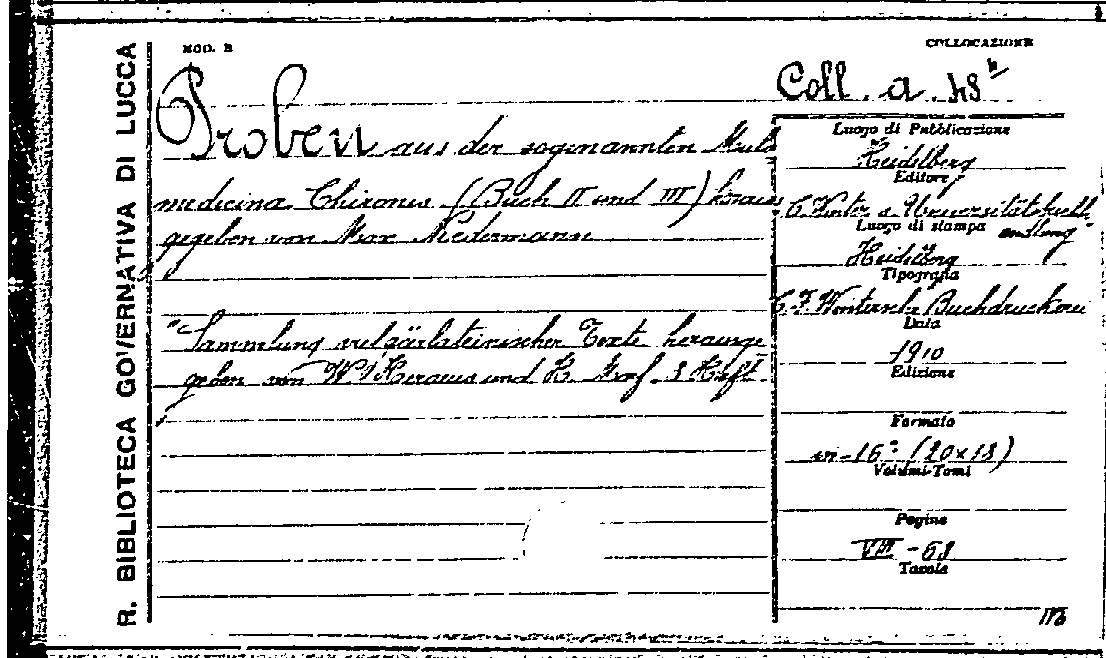 R. BIBLIOTECA GOVERNATIVA DI LUCCA
MOD. B
COLLOCAZIONE
Coll. a. 48
Proben aus der sogenannten Mulo
medicina Chironis (Buch II und III) heraus
gegeben von Max Niedermann
"Sammlung vulgärlateinischer Texte herausge
geben von W. Heraeus und H. Morf. 3 Heft.
Luogo di Pubblicazione
Heidelberg
Editore
C. Winter's Universitätsbuch
andlung
Luogo di stampa
Heidelberg
Tipografia
C. F. Wintersche Buchdruckerei
Data
1910
Edizione
Formato
in-16° (20x13)
Volumi-Tomi
Pagine
VIII - 68
Tavole